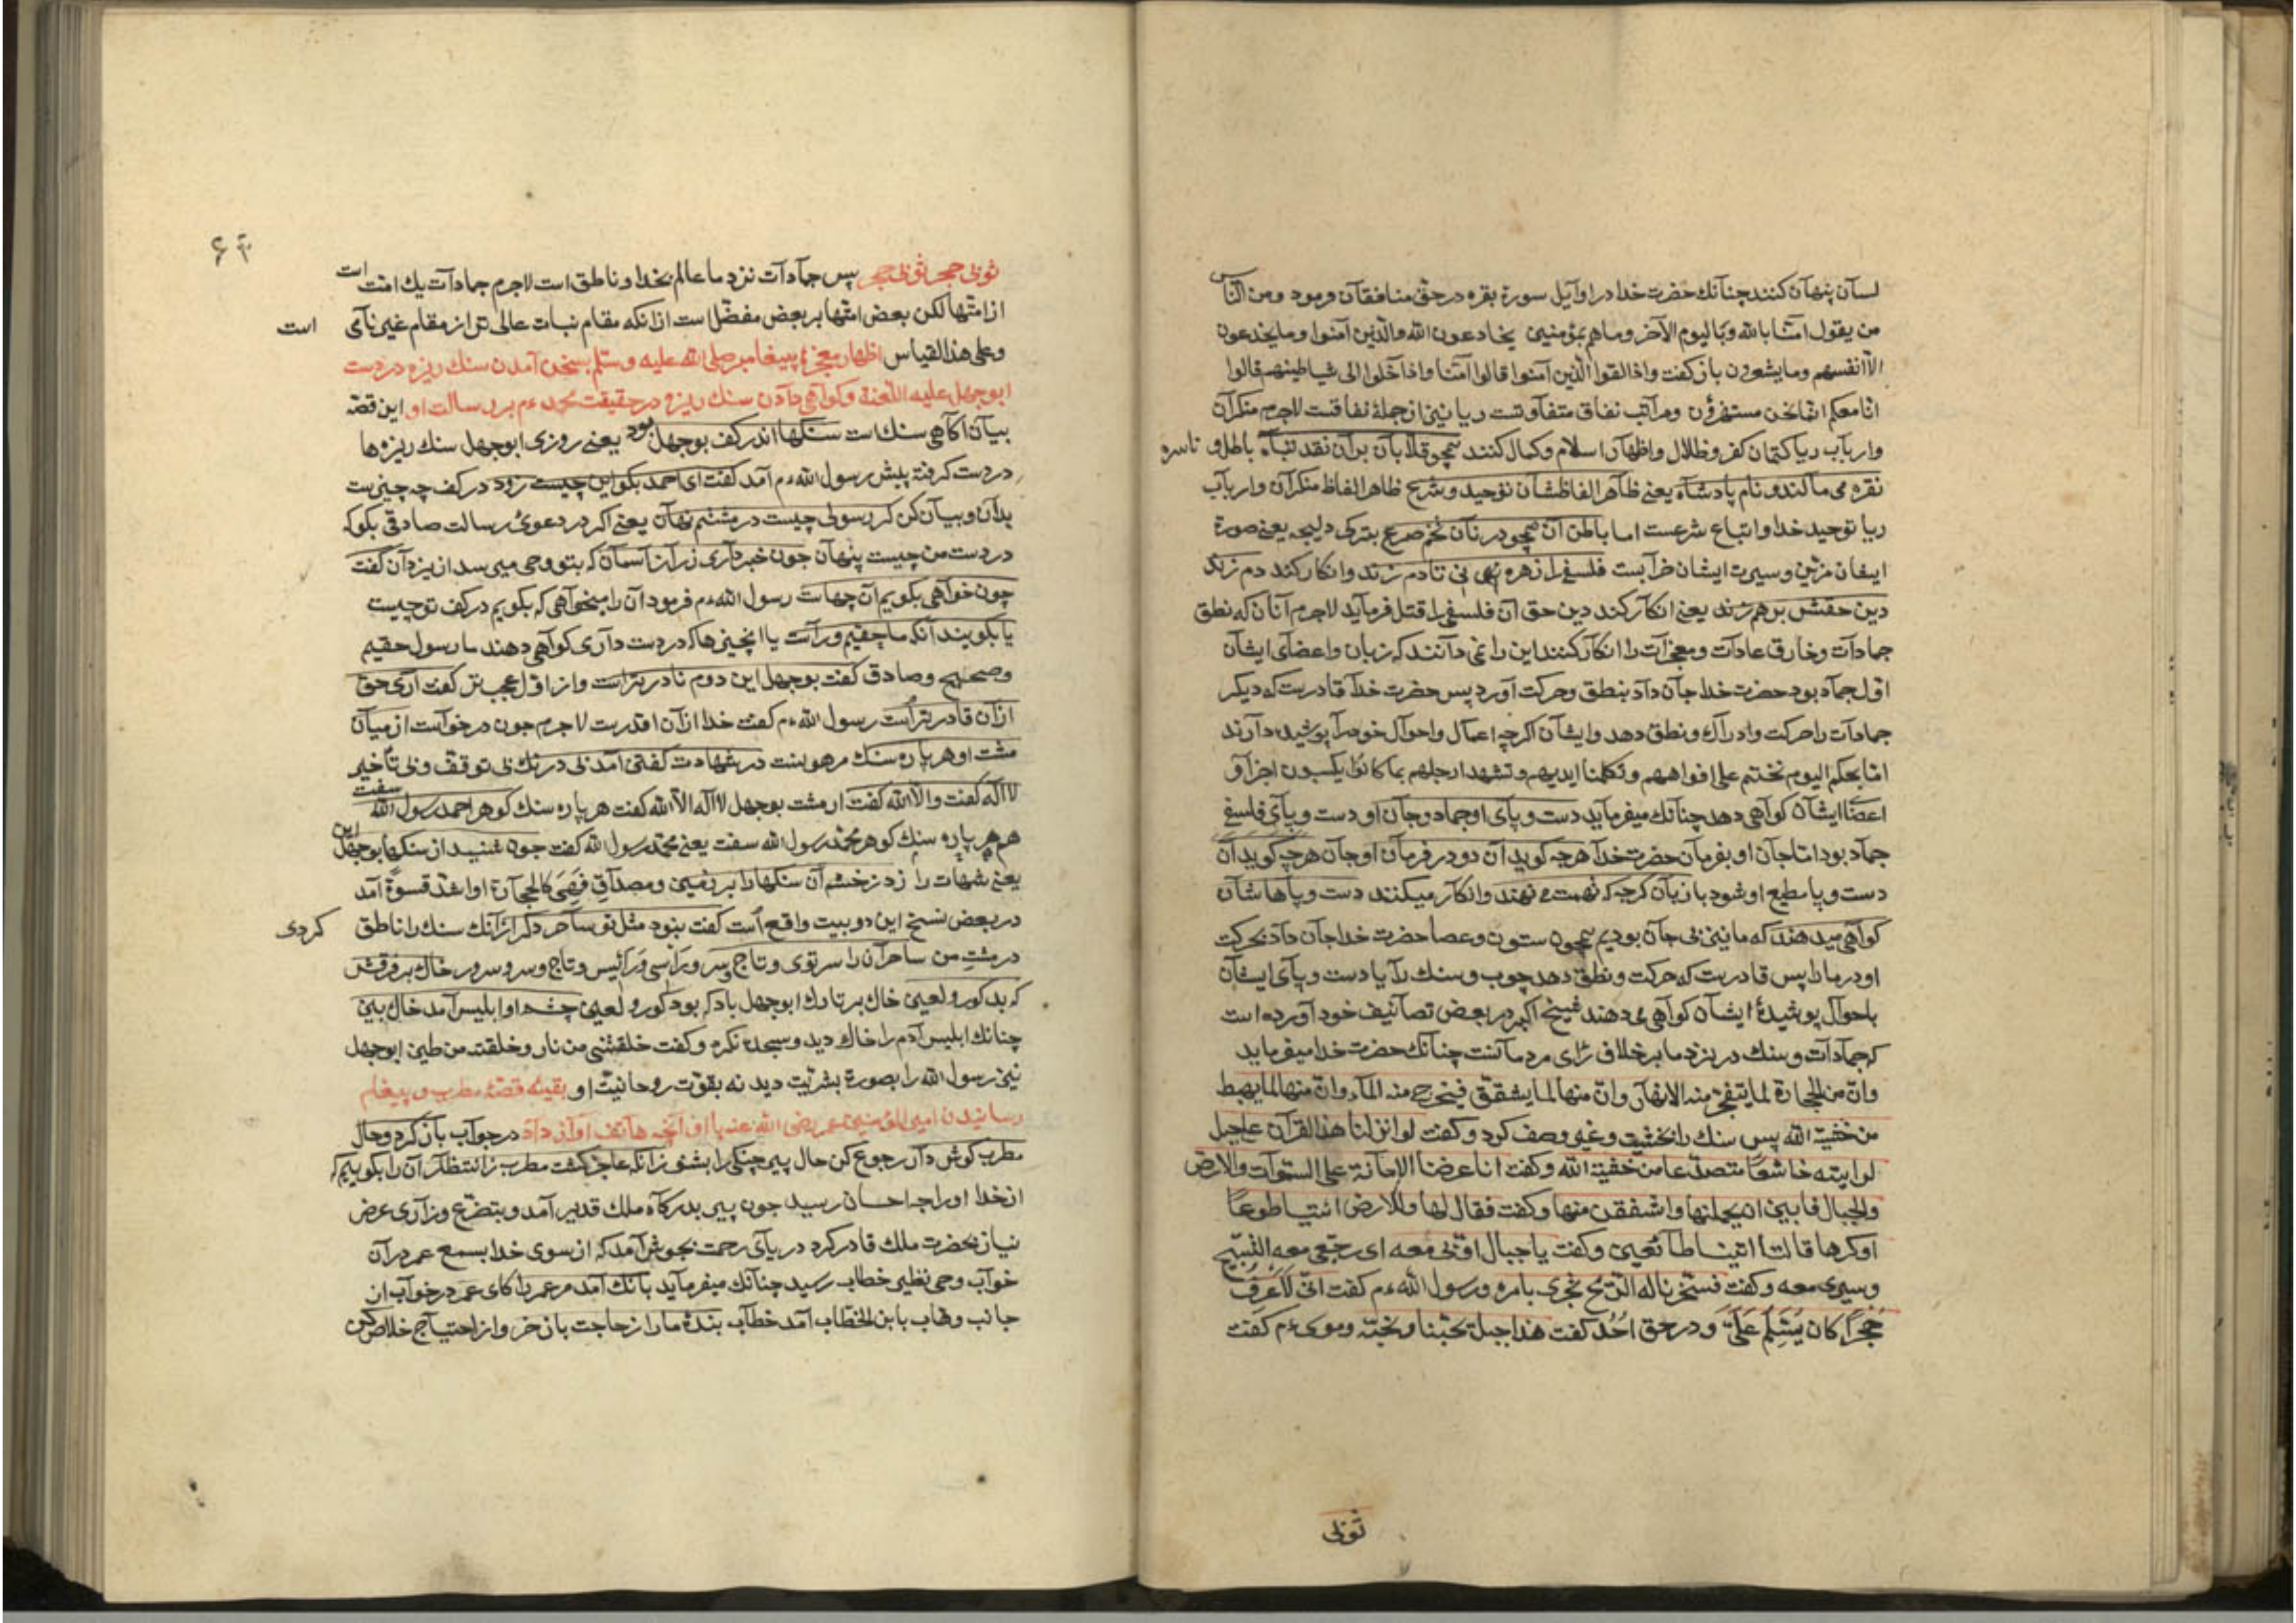 لسان پنهان كنند چنانك حضرت خدا در اوايل سورة بقره در حق منافقان فرمود ومن الناس
من يقول امنا بالله وباليوم الآخر وماهم بمؤمنين يخادعون الله والذين آمنوا ومايخدعون
الا انفسهم ومايشعرون باز كفت واذا لقوا الذين آمنوا قالوا آمنا واذا خلوا الى شياطينهم قالوا
انا معكم انما نحن مستهزؤن ومراتب نفاق متفاوتست ريا نيز از جملۀ نفاقست لاجرم منكران
وارباب ريا كتمان كفر وظلال واظهار اسلام وكمال كنند همچو قلابان بران نقد تباه باطل و ناسره
نقره مى مالند و نام پادشاه يعنى ظاهر الفاظشان توحيد وشرح ظاهر الفاظ منكران وارباب
ريا توحيد خدا واتباع شرعست اما باطن آن همچو در نان تخم صرع بتركى دليجه يعنى صورة
ايشان مزين وسيرت ايشان خرابست فلسفى را زهره نى تا دم زند وانكار كند دم زند
دين حقش بر هم زند يعنى انكار كند دين حق آن فلسفى را قتل فرمايد لاجرم آنان كه نطق
جمادات وخارق عادات ومعجزات را انكار كنند اين را نمى دانند كه زبان واعضاى ايشان
اول جماد بود حضرت خدا جان داد بنطق وحركت آورد پس حضرت خدا قادرست كه ديكر
جمادات را حركت وادراك ونطق دهد وايشان اكرچه اعمال واحوال خود را پوشيده دارند
اما بحكم اليوم نختم على افواههم وتكلمنا ايديهم وتشهد ارجلهم بما كانوا يكسبون اجزا و
اعضاء ايشان كواهى دهد چنانك ميفرمايد دست وپاى او جماد وجان او دست وپاى فلسفى
جماد بود اما جان او بفرمان حضرت خدا هرچه كويد آن دو در فرمان او جان هرچه كويد آن
دست وپا مطيع او شود با زبان كرچه كه تهمت مى نهند وانكار ميكنند دست وپاهاشان
كواهى ميدهند كه ما نيز بى جان بوديم همچون ستون وعصا حضرت خدا جان داد بحركت
او در ما را پس قادرست كه حركت ونطق دهد چوب وسنك را يا دست وپاى ايشان
باحوال پوشيدۀ ايشان كواهى مى دهند شيخ اكبر در بعض تصانيف خود آورده است
كه جمادات وسنك در نزد ما بر خلاف راى مردمانست چنانك حضرت خدا ميفرمايد
وان من الحجارة لما يتفجر منه الانهار وان منها لما يشقق فيخرج منه الماء وان منها لما يهبط
من خشية الله پس سنك را بخشيت وغيره وصف كرد وكفت لو انزلنا هذا القرآن على جبل
لرايته خاشعا متصدعا من خشية الله وكفت انا عرضنا الامانة على السموات والارض
والجبال فابين ان يحملنها واشفقن منها وكفت فقال لها وللارض ائتيا طوعا
او كرها قالتا اتينا طائعين وكفت يا جبال اوبى معه اى رجعى معه التسبيح
وسيرى معه وكفت فسخرنا له الريح تجرى بامره ورسول الله ءم كفت انى لاعرف
حجرا كان يسلم على ودر حق احد كفت هذا جبل يحبنا ونحبه وموسى ءم كفت
ثوبى
ثوبى حجر ثوبى حجر پس جمادات نزد ما عالم بخدا وناطق است لاجرم جمادات يك امت است
از امتها لكن بعض امتها بر بعض مفضل است از انكه مقام نبات عالى تر از مقام غير نامى است
وعلى هذا القياس اظهار معجزۀ پيغامبر صلى الله عليه وسلم بسخن آمدن سنك ريزه در دست
ابو جهل عليه اللعنة وكواهى دادن سنك ريزه در حقيقت محمد ءم بر رسالت او اين قصه
بيان آكاهى سنك است سنكها اندر كف بوجهل بود يعنى روزى ابوجهل سنك ريزه ها
در دست كرفته پيش رسول الله ءم آمد كفت اى احمد بكو اين چيست زود در كف چه چيزست
بدان وبيان كن كر رسولى چيست در مشتم نهان يعنى اكر در دعوئ رسالت صادقى بكو كه
در دست من چيست پنهان چون خبر دارى ز راز آسمان كه بتو وحى ميرسد از يزدان كفت
چون خواهى بكويم آن چهاست رسول الله ءم فرمود آن را ميخواهى كه بكويم در كف تو چيست
يا بكويند آنكه ما حقيم وراست يا اين چيزها كه در دست دارى كواهى دهند ما رسول حقيم
وصحيح وصادق كفت بوجهل اين دوم نادرترست واز اول عجبتر كفت آرى حق
از آن قادر ترست رسول الله ءم كفت خدا از آن اقدرست لاجرم چون درخواست از ميان
مشت او هر پاره سنك در شهادت كفتن آمد بى درنك بى توقف وبى تأخير
لا اله كفت والا الله كفت از مشت بوجهل لا اله الا الله كفت هر پاره سنك كوهر احمد رسول الله سفت
هر پاره سنك كوهر محمد رسول الله سفت يعنى محمد رسول الله كفت چون شنيد از سنكها بوجهل اين
يعنى شهادت را زد ز خشم آن سنكها را بر زمين ومصداق فهى كالحجارة او اشد قسوة آمد
در بعض نسخ اين دو بيت واقع است كفت نبود مثل تو ساحر دكر از آنك سنك را ناطق كردى
در مشت من ساحران را سر توى وتاج سر ورأسى ورئيس وتاج وسر وسرور خاك بر فرقش
كه بد كور ولعين خاك بر تارك ابوجهل باد كه بود كور ولعين چشم او ابليس آمد خاك بين
چنانك ابليس آدم را خاك ديد وسجده نكرد وكفت خلقتنى من نار وخلقته من طين ابوجهل
نيز رسول الله را بصورة بشريت ديد نه بقوت روحانيت او بقيۀ قصۀ مطرب وپيغام
رسانيدن امير المؤمنين عمر رضى الله عنه باو آنچه هاتف آواز داد در جواب باز كرد وحال
مطرب كوش دار رجوع كن حال پير چنكى را بشنو زانكه عاجز كشت مطرب ز انتظار آن را بكوييم كه
از خدا او را چه احسان رسيد چون پير بدركاه ملك قدير آمد وبتضرع وزارى عرض
نياز بحضرت ملك قادر كرد درياى رحمت بجوش آمد كه از سوى خدا بسمع عمر در آن
خواب وحى نظير خطاب رسيد چنانك ميفرمايد بانك آمد مر عمر را كاى عمر در خواب از
جانب وهاب بابن الخطاب آمد خطاب بندۀ ما را ز حاجت باز خر واز احتياج خلاص كن